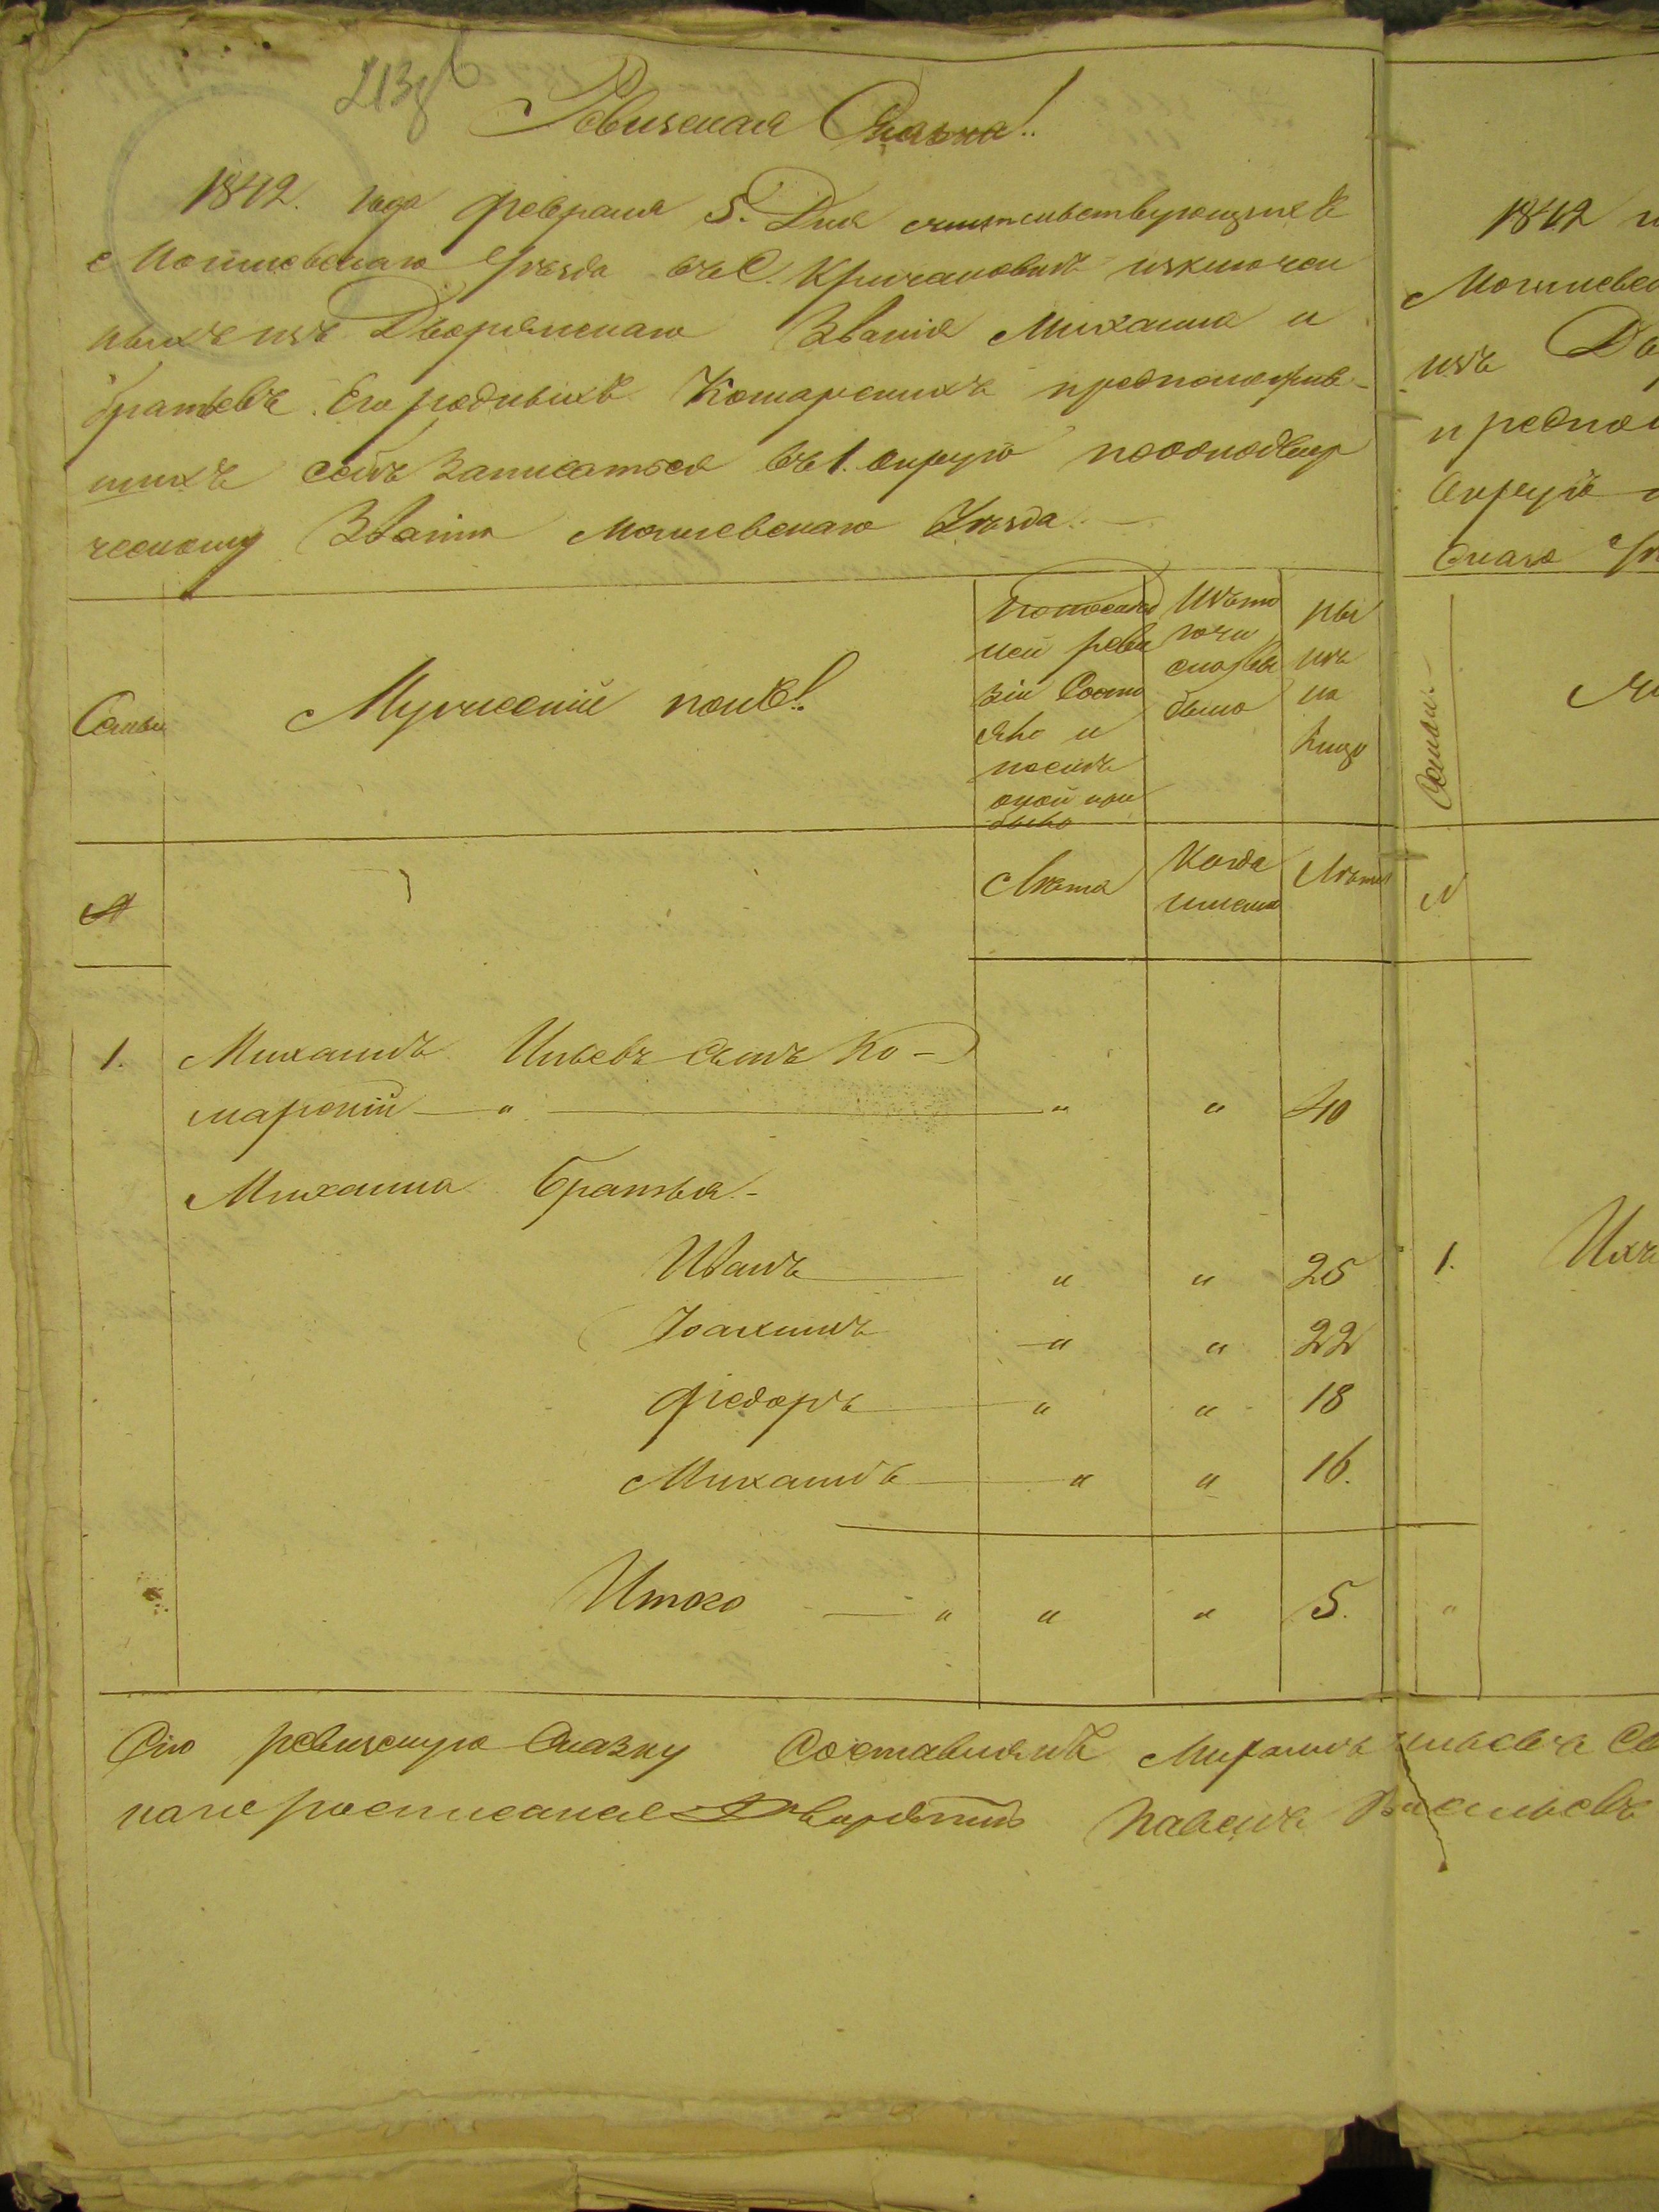 213 об
Ревизская Сказка!.
1842. года февраля 5. Дня жительствующихъ
Могилевскаго Уѣзда въ С. Кричановкѣ изключен
ныхъ изъ Дворянскаго Званія Михаила и
братьевъ Его родныхъ Комарскихъ предположив-
шихъ себѣ записатся въ 1. округѣ
ческому Званію Могилевскаго Уѣзда.
Семьи
Мужескій полъ!.
По послѣд
ней реви
зіи Состо
яло и
послѣ
оной при
было
Изъ то
го чи
сла вы
было
Ны
нѣ
на
лицо
№
Лѣта
Когда
именно
Лѣта
1. Михаилъ Ильевъ сынъ Ко-
марскій — " — " " 40
Михаила братья.-
Иванъ " " 25
Іоакимъ " " 22
Федоръ " " 18
Михаилъ " " 16.
Итого — " " " 5.
Сію ревизскую Сказку Составлялъ Михаилъ Ильевъ
Павелъ Васильевъ
1842
Могилевс
изъ Дв
предпол
Округѣ
Семьи
№
1. Ихъ
"